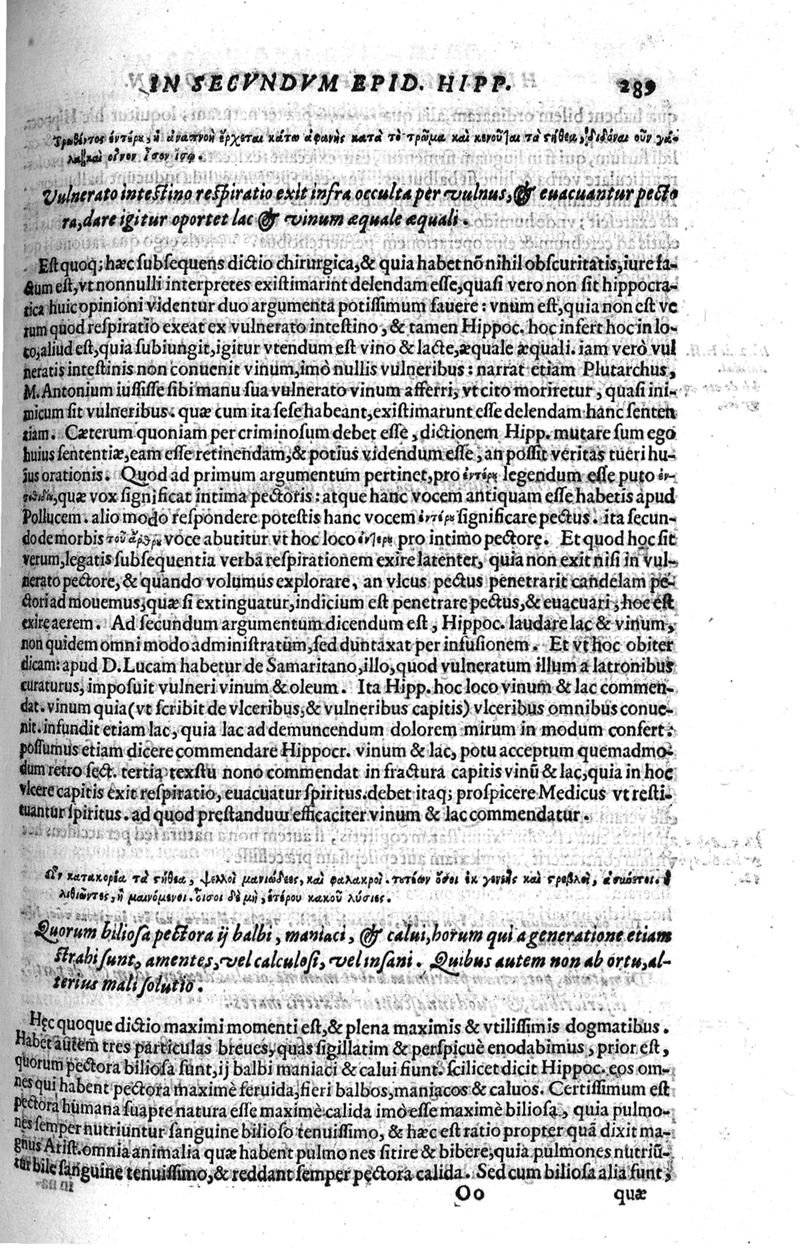 IN SECVNDVM EPID. HIPP. 289
Τρωθέντος ἐντέρου, ἡ ἀναπνοὴ ἔρχεται κάτω ἀφανὴς κατὰ τὸ τρῶμα καὶ κενοῦται τὰ στήθεα, διδόναι οὖν γά-
λα καὶ οἶνον ἴσον ἴσῳ.
Vulnerato intestino respiratio exit infra occulta per vulnus, & euacuantur pecto
ra, dare igitur oportet lac & vinum æquale æquali.
Est quoq; hæc subsequens dictio chirurgica, & quia habet nō nihil obscuritatis, iure fa-
ctum est, vt nonnulli interpretes existimarint delendam esse, quasi vero non sit hippocra-
tica huic opinioni videntur duo argumenta potissimum fauere: vnum est, quia non est ve
rum quod respiratio exeat ex vulnerato intestino, & tamen Hippoc. hoc insert hoc in lo-
co, aliud est, quia subiungit, igitur vtendum est vino & lacte, æquale æquali. iam verò vul
neratis intestinis non conuenit vinum, imò nullis vulneribus: narrat etiam Plutarchus,
M. Antonium iussisse sibi manu sua vulnerato vinum afferri, vt cito moriretur, quasi ini-
micum sit vulneribus. quæ cum ita sese habeant, existimarunt esse delendam hanc senten
tiam. Cæterum quoniam per criminosum debet esse, dictionem Hipp. mutare sum ego
huius sententiæ, eam esse retinendam, & potius videndum esse, an possit veritas tueri hu-
ius orationis. Quod ad primum argumentum pertinet, pro ἐντέρου legendum esse puto
quæ vox significat intima pectoris: atque hanc vocem antiquam esse habetis apud
Pollucem. alio modo respondere potestis hanc vocem ἐντέρου significare pectus. ita secun-
do de morbis τοῦ ἄρθρου voce abutitur vt hoc loco ἐντέρου pro intimo pectore. Et quod hoc sit
verum, legatis subsequentia verba respirationem exire latenter, quia non exit nisi in vul-
nerato pectore, & quando volumus explorare, an vlcus pectus penetrarit candelam pe-
ctori admouemus; quæ si extinguatur, indicium est penetrare pectus, & euacuari, hoc est
exire aerem. Ad secundum argumentum dicendum est, Hippoc. laudare lac & vinum,
non quidem omni modo administratum, sed duntaxat per infusionem. Et vt hoc obiter
dicam: apud D. Lucam habetur de Samaritano, illo, quod vulneratum illum a latronibus
curaturus, imposuit vulneri vinum & oleum. Ita Hipp. hoc loco vinum & lac commen-
dat. vinum quia (vt scribit de vlceribus, & vulneribus capitis) vlceribus omnibus conue-
nit. infundit etiam lac, quia lac ad demuncendum dolorem mirum in modum confert:
possumus etiam dicere commendare Hippocr. vinum & lac, potu acceptum quemadmo-
dum retro sect. tertia texstu nono commendat in fractura capitis vinū & lac, quia in hoc
vlcere capitis exit respiratio, euacuatur spiritus. debet itaq; prospicere Medicus vt resti-
tuantur spiritus. ad quod prestanduм efficaciter vinum & lac commendatur.
Ὧν κατακορέα τὰ στήθεα, ψελλοὶ μανιώδεες, καὶ φαλακροὶ. τουτέων ὅσοι ἐκ γενεῆς καὶ στρεβλοὶ, ἀσύνετοι. ἢ
λιθιῶντες, ἢ μαινόμενοι. ὅισοι δὲ μὴ, ἑτέρου κακοῦ λύσιες.
Quorum biliosa pectora ij balbi, maniaci, & calui, horum qui a generatione etiam
strabi sunt, amentes, vel calculosi, vel insani. Quibus autem non ab ortu, al-
terius mali solutio.
Hęc quoque dictio maximi momenti est, & plena maximis & vtilissimis dogmatibus.
Habet autem tres particulas breues, quas sigillatim & perspicuè enodabimus, prior est,
quorum pectora biliosa sunt, ij balbi maniaci & calui fiunt. scilicet dicit Hippoc. eos om-
nes qui habent pectora maximè feruida, fieri balbos, maniacos & caluos. Certissimum est
pectora humana suapte natura esse maximè calida imò esse maximè biliosa, quia pulmo-
nes semper nutriuntur sanguine bilioso tenuissimo, & hæc est ratio propter quā dixit ma-
gnus Arist. omnia animalia quæ habent pulmones sitire & bibere, quia pulmones nutriū-
tur bile sanguine tenuissimo, & reddant semper pectora calida. Sed cum biliosa alia sunt,
Oo quæ